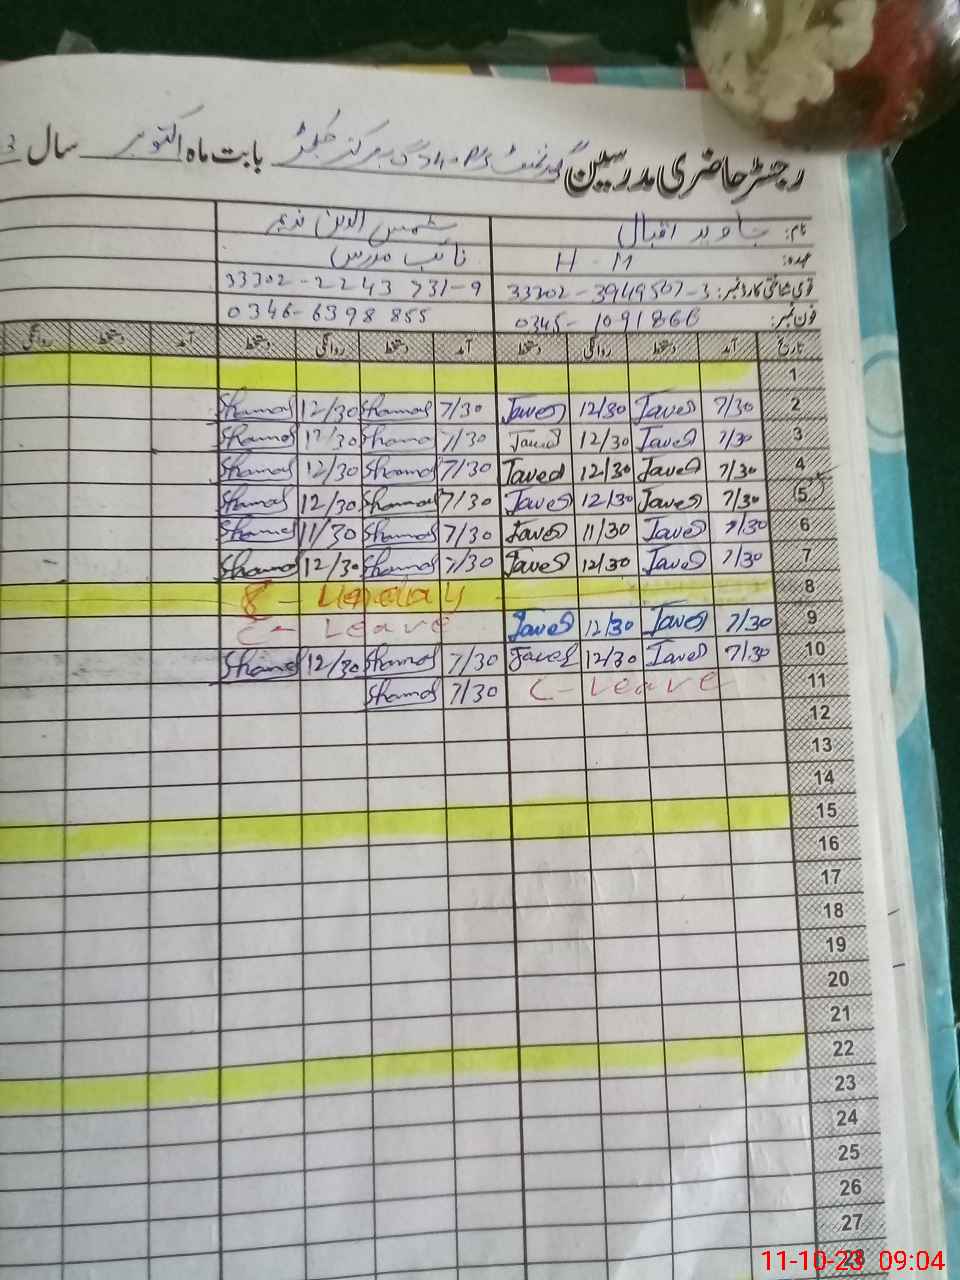 رجسٹر حاضری مدرسین گورنمنٹ بابت ماہ اکتوبر سال
نام: جاوید اقبال شمس الدین ندیم
عہدہ: H-M نائب مدرس
قومی شناختی کارڈ نمبر: 33302-3949507-3 33302-2243731-9
فون نمبر: 0345-1091866 0346-6398855
تاریخ آمد دستخط روانگی دستخط آمد دستخط روانگی دستخط آمد دستخط روانگی
1
2 7/30 Javed 12/30 Javed 7/30 Shamas 12/30 Shamas
3 7/30 Javed 12/30 Javed 7/30 Shamas 12/30 Shamas
4 7/30 Javed 12/30 Javed 7/30 Shamas 12/30 Shamas
5 7/30 Javed 12/30 Javed 7/30 Shamas 12/30 Shamas
6 7/30 Javed 11/30 Javed 7/30 Shamas 11/30 Shamas
7 7/30 Javed 12/30 Javed 7/30 Shamas 12/30 Shamas
8
9 7/30 Javed 12/30 Javed C-Leave
10 7/30 Javed 12/30 Javed 7/30 Shamas 12/30 Shamas
11 C-Leave 7/30 Shamas
12
13
14
15
16
17
18
19
20
21
22
23
24
25
26
27
28
11-10-23 09:04